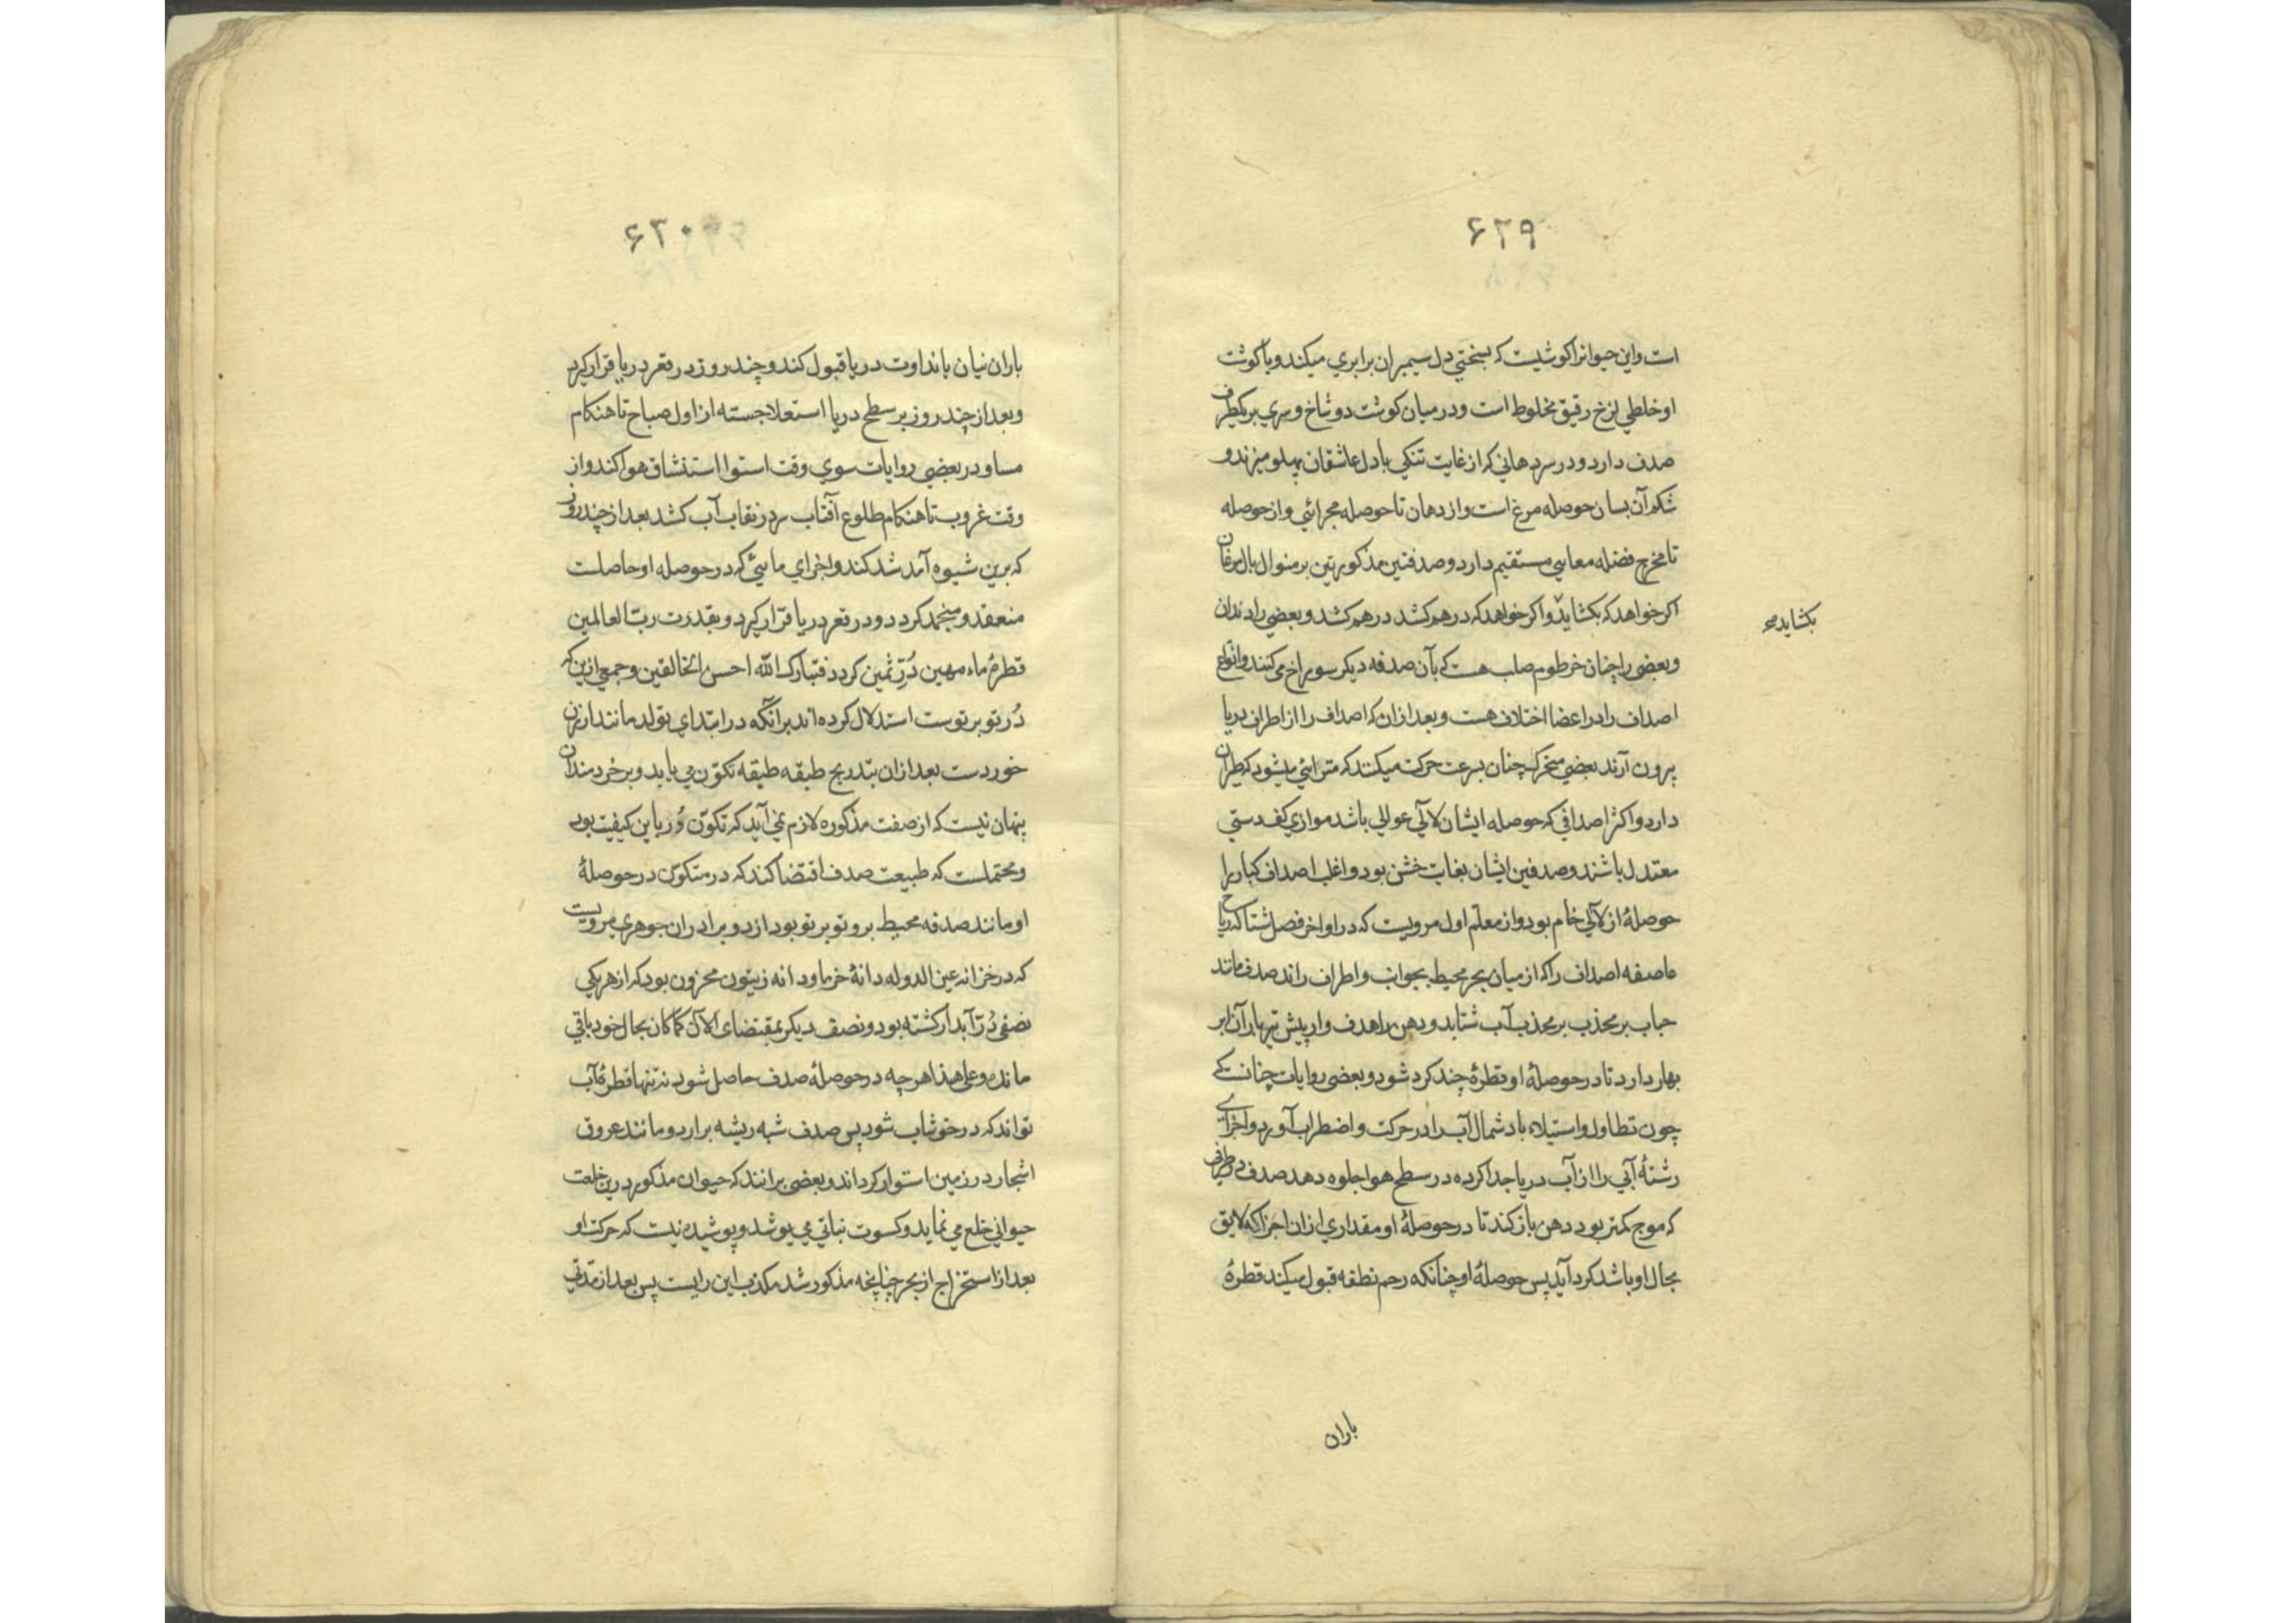 ۶۲۹
است و این حیوانرا کوشتیست که بسختی دل سیمبران برابری میکند و با کوشت
او خلطی لزج رقیق مخلوط است و در میان کوشت دو شاخ و سری بر یکطرف
صدف دارد و در سر دهانی که از غایت تنکی با دل عاشقان پهلو میزند و
شکم آن بسان حوصله مرغ است و از دهان تا حوصله مجرائی و از حوصله
تا مخرج فضله معایی مستقیم دارد و صدفتین مذکورتین بر منوال بال مرغان
اکر خواهد که بکشاید و اکر خواهد که درهم کشد درهم کشد و بعضی را دندان
بکشاید صح
و بعضی را چنان خرطوم صلب هست که بآن صدفه دیکر سوراخ می کنند و انواع
اصداف را در اعضا اختلاف هست و بعد ازان که اصداف را از اطراف دریا
برون آرند بعضی متحرک چنان بسرعت حرکت میکنند که مترائی میشود که طیران
دارد و اکثر اصدافی که حوصله ایشان لالی عوالی باشد موازی کف دستی
معتدل باشند و صدفین ایشان بغایت خشن بود و اغلب اصداف کبار را
حوصلهٔ از لالی خام بود و از معلم اول مرویست که در اواخر فصل شتا که ریاح
عاصفه اصداف را که از میان بحر محیط بجوانب و اطراف راند صدف مانند
حباب بر محذب آب شتابد و دهن را هدف وار پیش تیر باران ابر
بهار دارد تا در حوصلهٔ او قطرهٔ چند کرد شود و بعضی روایات چنانست که
چون تطاول و استیلاء باد شمال آب را در حرکت و اضطراب آورد و اجزای
رشتهٔ آبی را از آب دریا جدا کرده در سطح هوا جلوه دهد صدف در طرفی
که موج کمتر بود دهن باز کند تا در حوصلهٔ او مقداری ازان اجزا که لایق
بحال او باشد کرد آید پس حوصلهٔ او چنانکه رحم نطفه قبول میکند قطرهٔ
باران
۶۳۰
باران نیسان با نداوت دریا قبول کند و چند روز در قعر دریا قرار کیرد
و بعد از چند روز بر سطح دریا استعلا جسته از اول صباح تا هنکام
مسا و در بعضی روایات سوی وقت استوا استنشاق هوا کند و از
وقت غروب تا هنکام طلوع آفتاب سر در نقاب آب کشد بعد از چند روز
که برین شیوه آمد شد کند و اجزای مائیی که در حوصله او حاصلست
منعقد و منجمد کردد و در قعر دریا قرار کیرد و بقدرت رب العالمین
قطرهٔ ماء مهین دُرّ ثمین کردد فتبارک الله احسن الخالقین و جمعی ازین که
دُر تو بر توست استدلال کرده اند بر آنکه در ابتدای تولد مانند ارزن
خوردست بعد ازان بتدریج طبقه طبقه تکوّن می یابد و بر خردمندان
پنهان نیست که از صفت مذکوره لازم نمی آید که تکوّن دُر باین کیفیت بود
و محتملست که طبیعت صدف اقتضا کند که در متکون در حوصلهٔ
او مانند صدفه محیط برو تو بر تو بود از دو برادران جوهری مرویست
که در خزانه عین الدوله دانهٔ خرما و دانه زیتون مخزون بود که از هر یکی
نصفی دُرّ آبدار کشته بود و نصف دیکر بمقتضای الآن کما کان بحال خود باقی
مانده و علی هذا هر چه در حوصلهٔ صدف حاصل شود نه تنها قطرهٔ آب
تواند که در خوشاب شود پس صدف شبه ریشه برارد و مانند عروق
اشجار در زمین استوار کرداند و بعضی برانند که حیوان مذکور درین خلعت
حیوانی خلع می نماید و کسوت نباتی می پوشد و پوشیده نیست که حرکت او
بعد از استخراج از بحر چنانچه مذکور شد مکذب این رایست پس بعد از مدتی